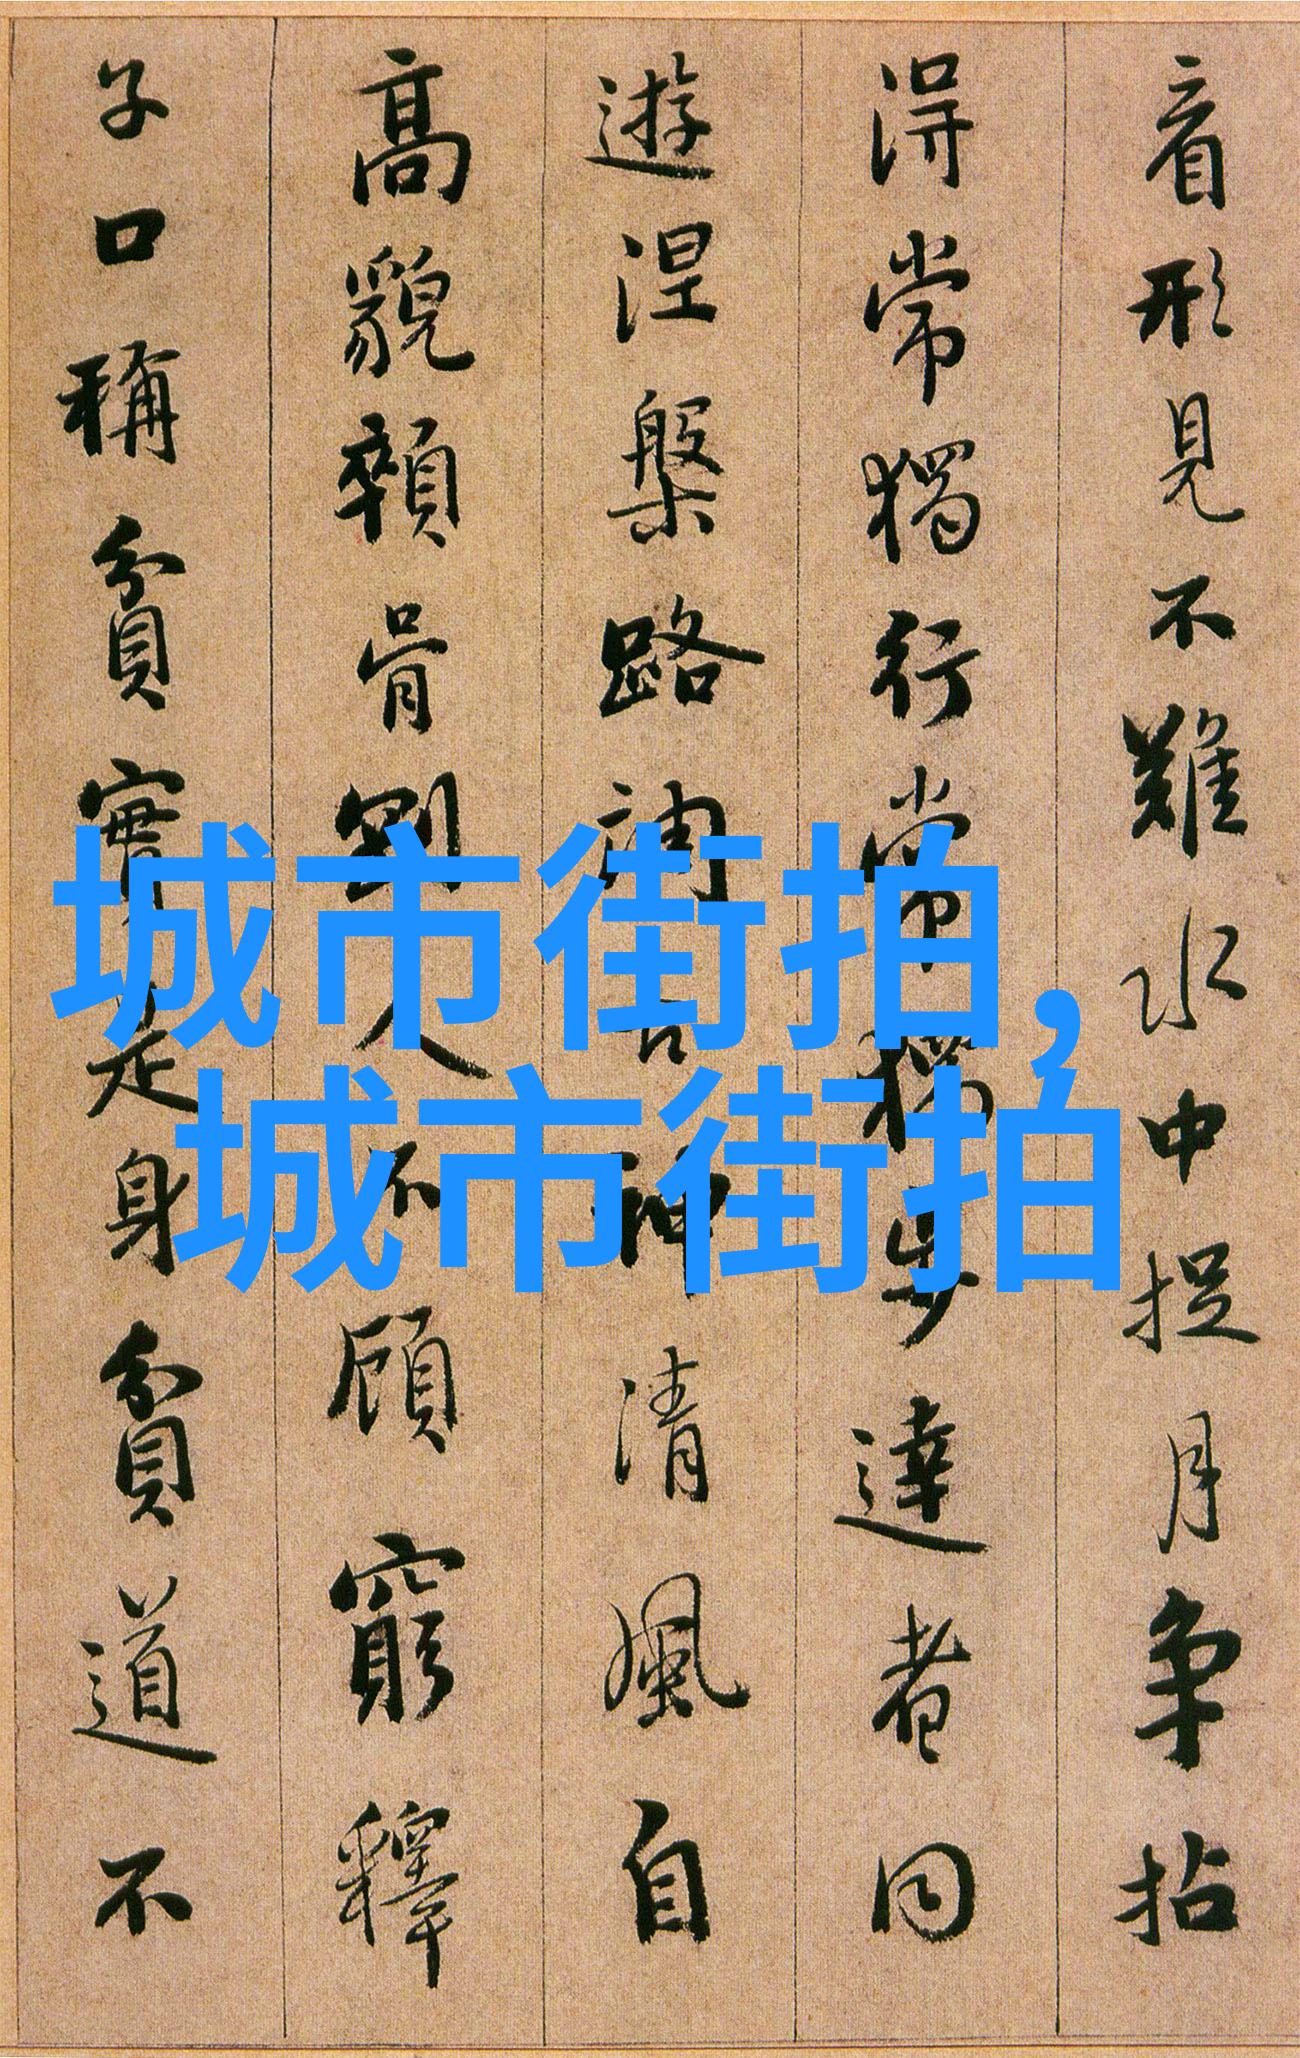 看形見不難水中捉月爭拈
得常獨行常獨步達者同
遊涅槃路調古神清風自
高貌顇骨剛人不顧窮釋
子口稱貧實是身貧道不
城市街拍,
城市街拍